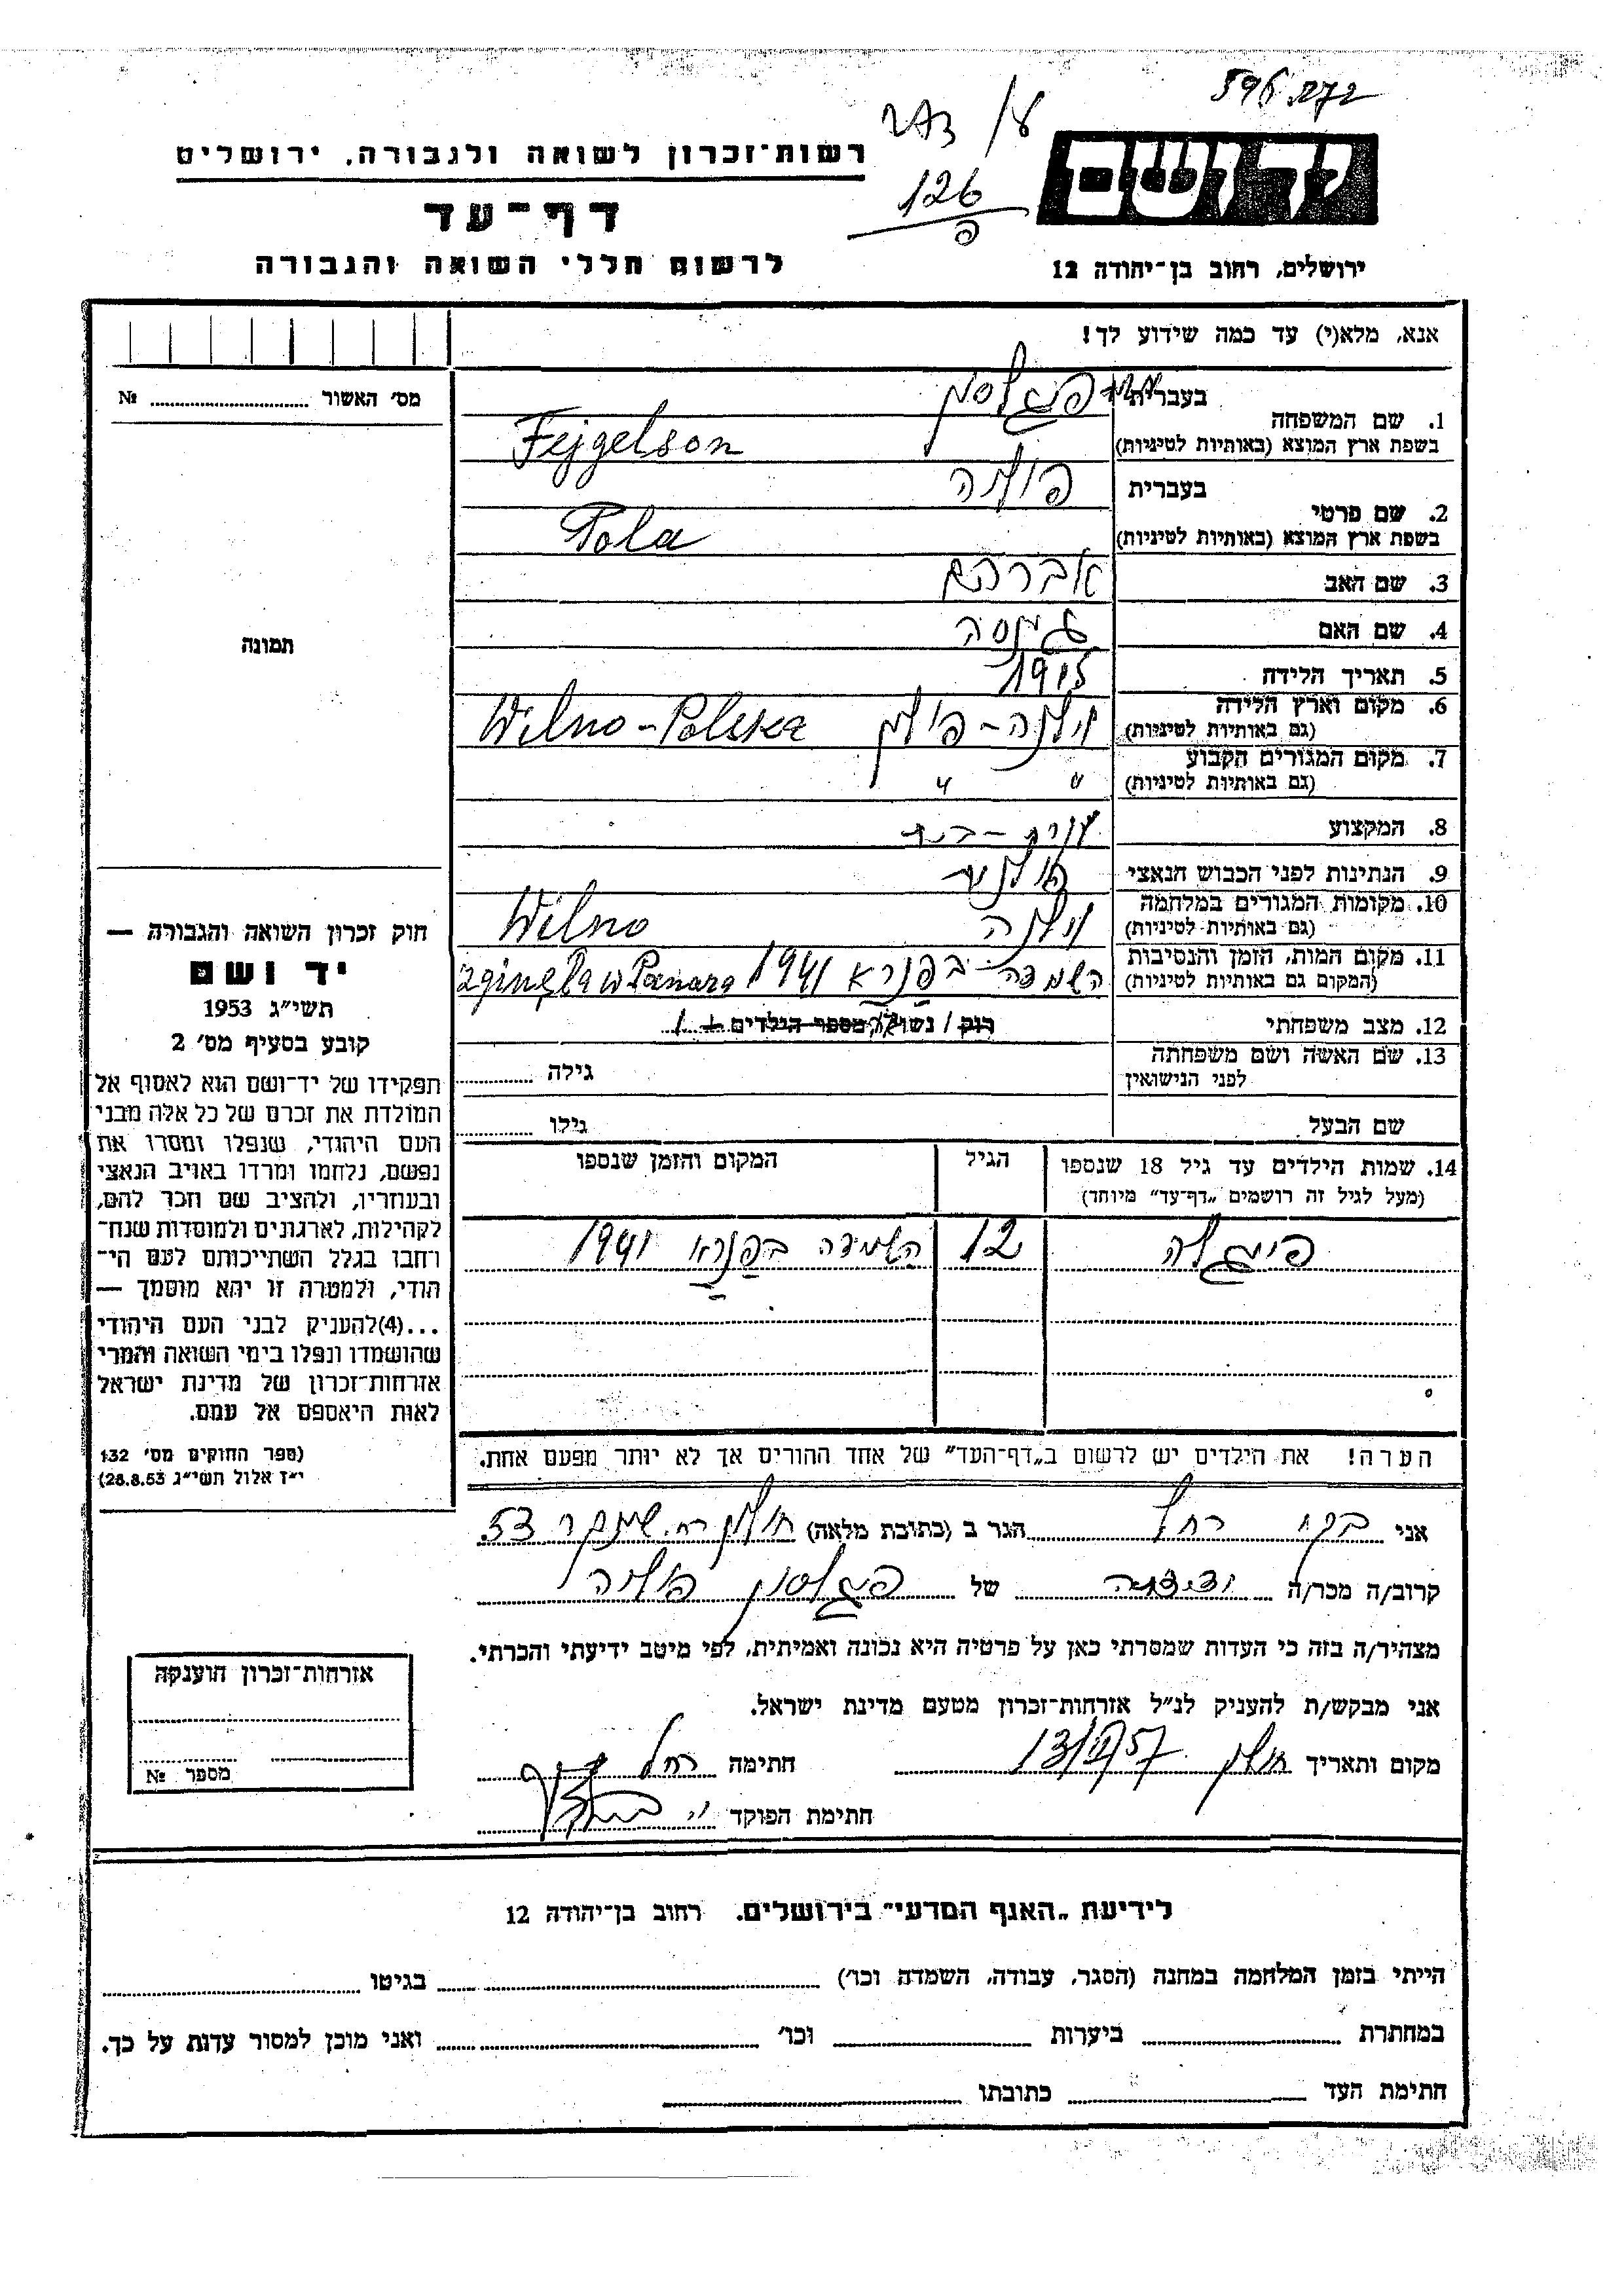 596.272
126
יד ושם
רשות־זכרון לשואה ולגבורה, ירושלים
דף־עד
לרשום חללי השואה והגבורה
ירושלים, רחוב בן־יהודה 12
אנא, מלא(י) עד כמה שידוע לך!
מס׳ האשור ........ №
1. שם המשפחה
בעברית פגלסון
בשפת ארץ המוצא (באותיות לטיניות) Fejgelson
2. שם פרטי
בעברית פולה
בשפת ארץ המוצא (באותיות לטיניות) Pola
3. שם האב אברהם
4. שם האם
5. תאריך הלידה 1915
6. מקום וארץ הלידה
(גם באותיות לטיניות) וילנה - פולין Wilno - Polska
7. מקום המגורים הקבוע
(גם באותיות לטיניות) " "
8. המקצוע עקרת - בית
9. הנתינות לפני הכבוש הנאצי
10. מקומות המגורים במלחמה
(גם באותיות לטיניות) וילנה Wilno
11. מקום המות, הזמן והנסיבות
(המקום גם באותיות לטיניות) השמדה - בפנרא 1941 zginęła w Panara
12. מצב משפחתי רווק / נשוי / מספר הילדים
13. שם האשה ושם משפחתה
לפני הנישואין גילה
שם הבעל גילו
14. שמות הילדים עד גיל 18 שנספו
(מעל לגיל זה רושמים „דף־עד" מיוחד)
הגיל
המקום והזמן שנספו
פיגלה 12 השמדה בפנרא 1941
הערה! את הילדים יש לרשום ב„דף־העד" של אחד ההורים אך לא יותר מפעם אחת.
תמונה
חוק זכרון השואה והגבורה —
יד ושם
תשי״ג 1953
קובע בסעיף מס׳ 2
תפקידו של יד־ושם הוא לאסוף אל
המולדת את זכרם של כל אלה מבני
העם היהודי, שנפלו ומסרו את
נפשם, נלחמו ומרדו באויב הנאצי
ובעוזריו, ולהציב שם וזכר להם,
לקהילות, לארגונים ולמוסדות שנח־
רחבו בגלל השתייכותם לעם הי־
הודי, ולמטרה זו יהא מוסמך —
...(4)להעניק לבני העם היהודי
שהושמדו ונפלו בימי השואה והמרי
אזרחות־זכרון של מדינת ישראל
לאות היאספם אל עמם.
(ספר החוקים מס׳ 132
י״ז אלול תשי״ג 28.8.53)
אני רחל הגר ב (כתובת מלאה) חולון 53
קרוב/ה מכר/ה ידידה של פגלסון פולה
מצהיר/ה בזה כי העדות שמסרתי כאן על פרטיה היא נכונה ואמיתית, לפי מיטב ידיעתי והכרתי.
אני מבקש/ת להעניק לנ״ל אזרחות־זכרון מטעם מדינת ישראל.
מקום ותאריך חולון חתימה רחל
חתימת הפוקד
אזרחות־זכרון הוענקה
מספר №
לידיעת „האגף המדעי" בירושלים. רחוב בן־יהודה 12
הייתי בזמן המלחמה במחנה (הסגר, עבודה, השמדה וכו׳) בגיטו
במחתרת ביערות וכו׳ ואני מוכן למסור עדות על כך.
חתימת העד כתובתו